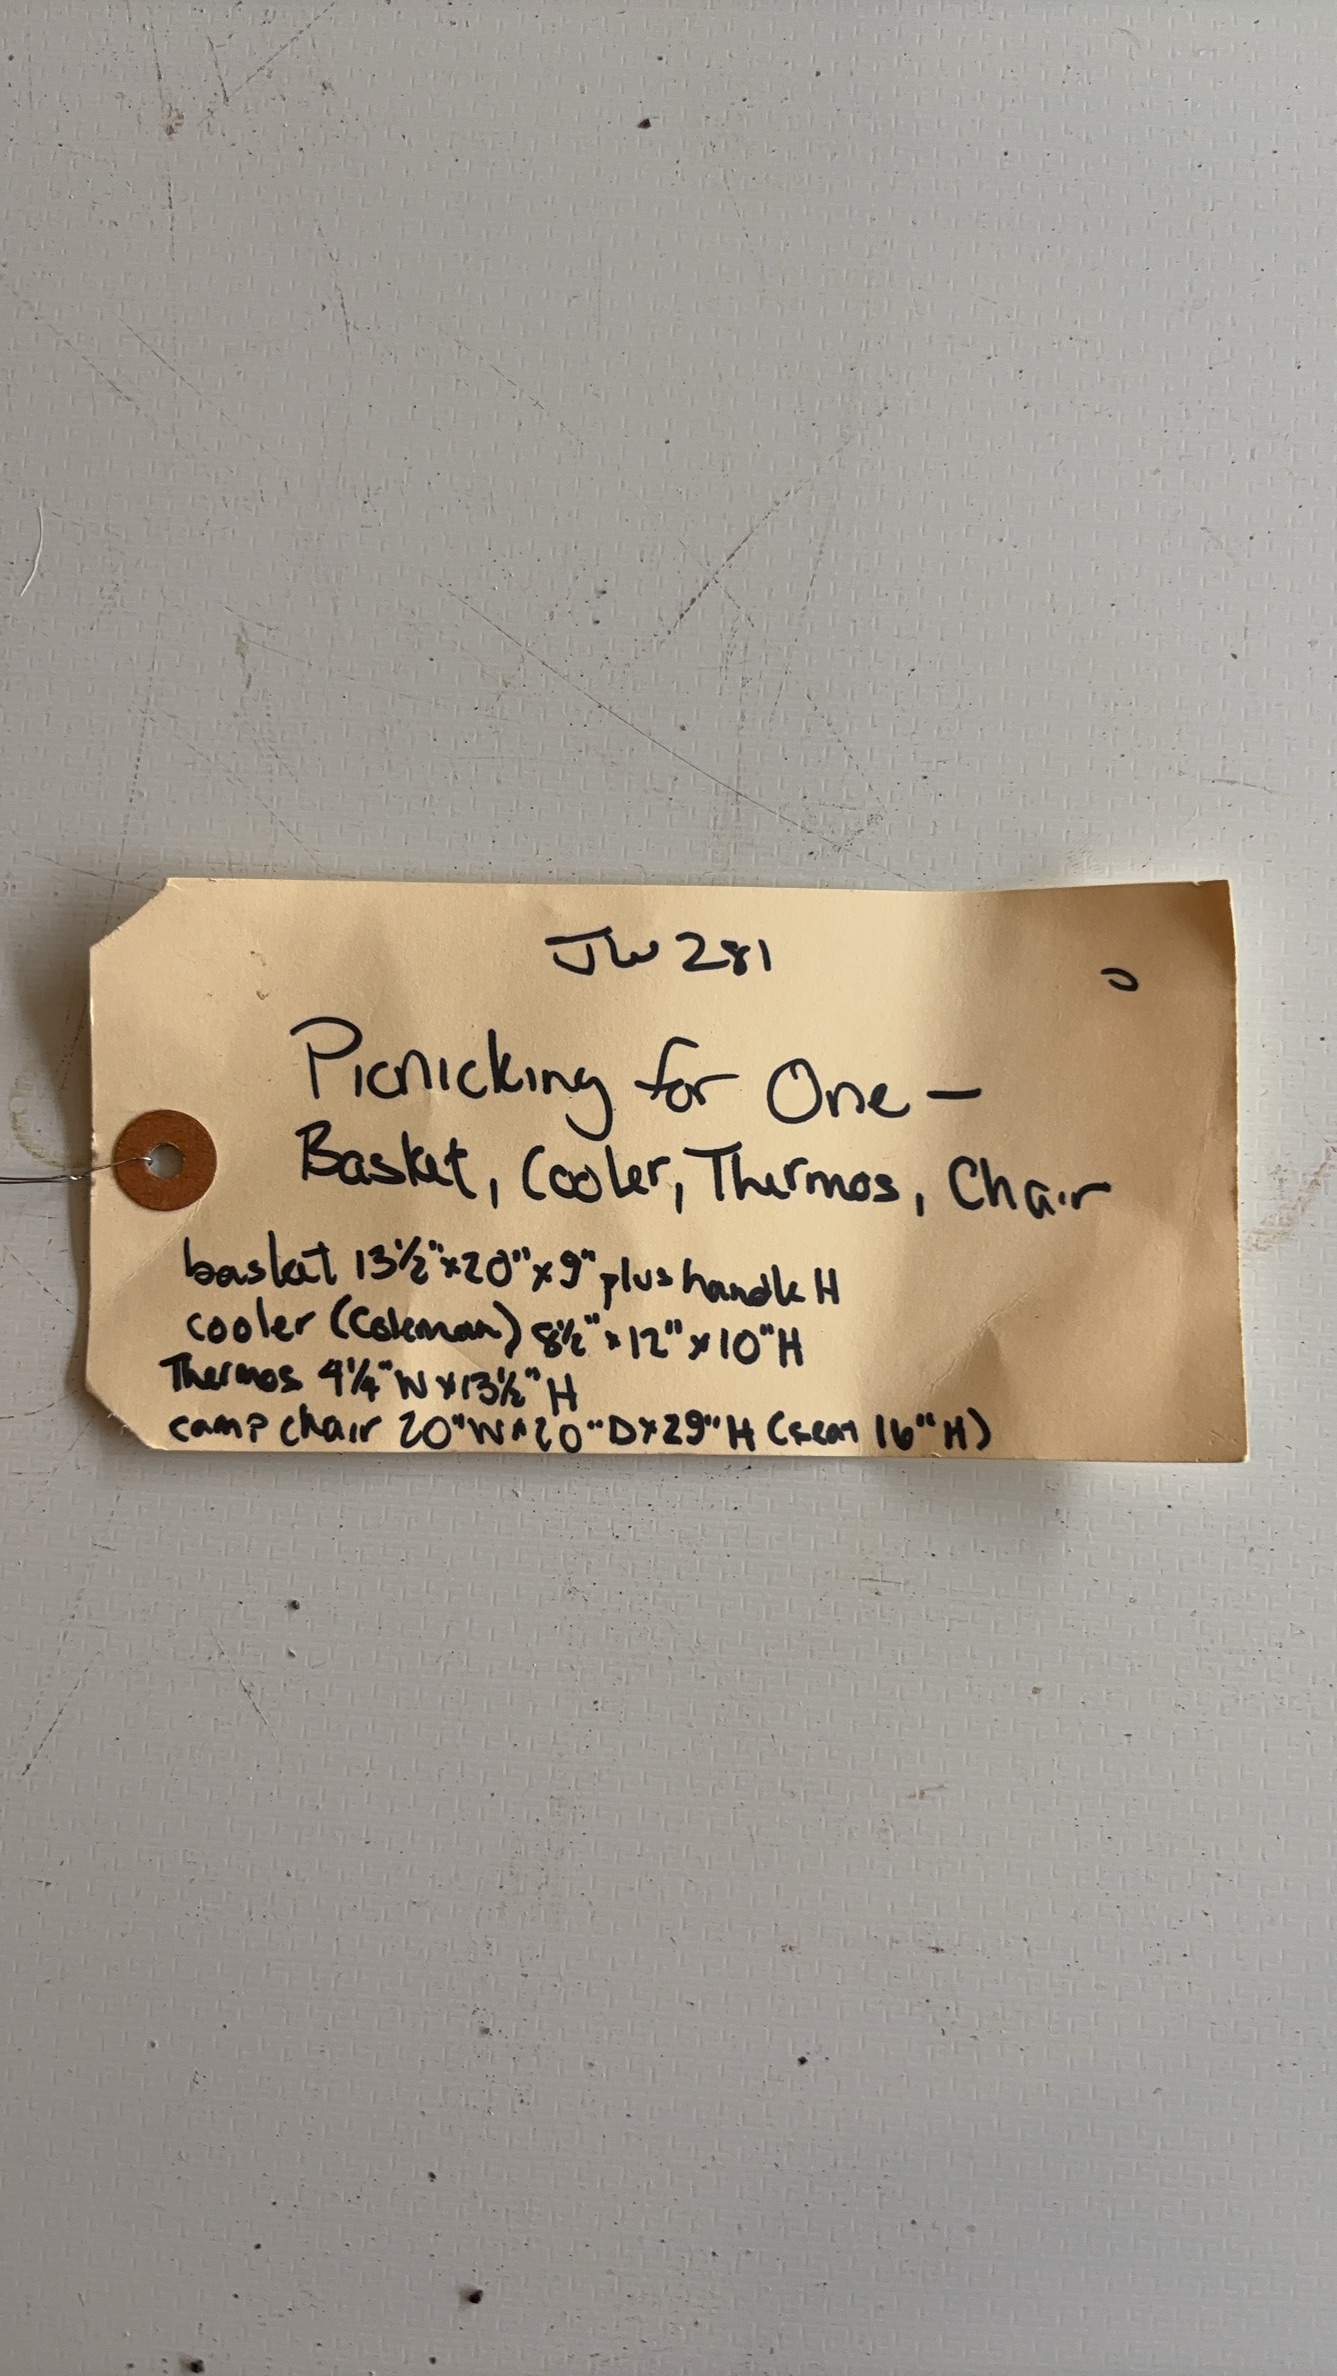 JW 281
Picnicking for One –
Basket, Cooler, Thermos, Chair
basket 13½" x 20" x 9" plus handle H
cooler (Coleman) 8½" x 12" x 10" H
Thermos 4¼" W x 13½" H
camp chair 20" W x 20" D x 29" H (seat 16" H)